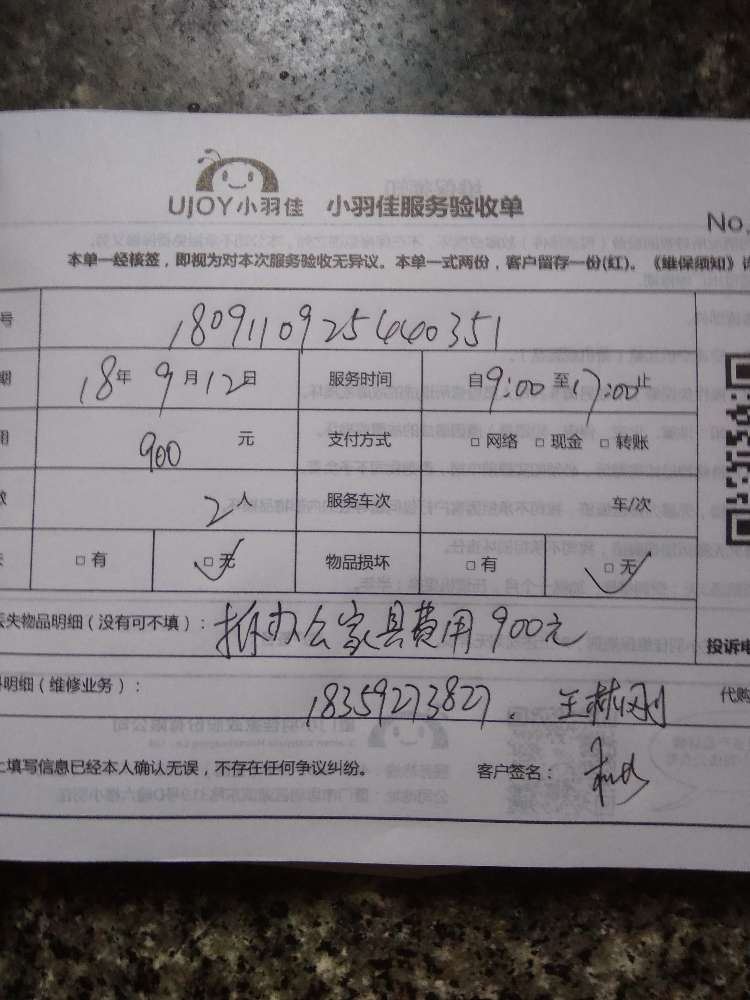 UJOY小羽佳 小羽佳服务验收单
No.
本单一经核签，即视为对本次服务验收无异议。本单一式两份，客户留存一份(红)。《维保须知》
号 180911092544440351
期 18年9月12日 服务时间 自9:00至17:00止
用 900 元 支付方式 □网络 □现金 □转账
数 2人 服务车次 车/次
□有 □无 物品损坏 □有 □无
失物品明细（没有可不填）： 拆办公家具费用900元
投诉电
明细（维修业务）： 18359273827. 王林刚
代购
上填写信息已经本人确认无误，不存在任何争议纠纷。 客户签名：